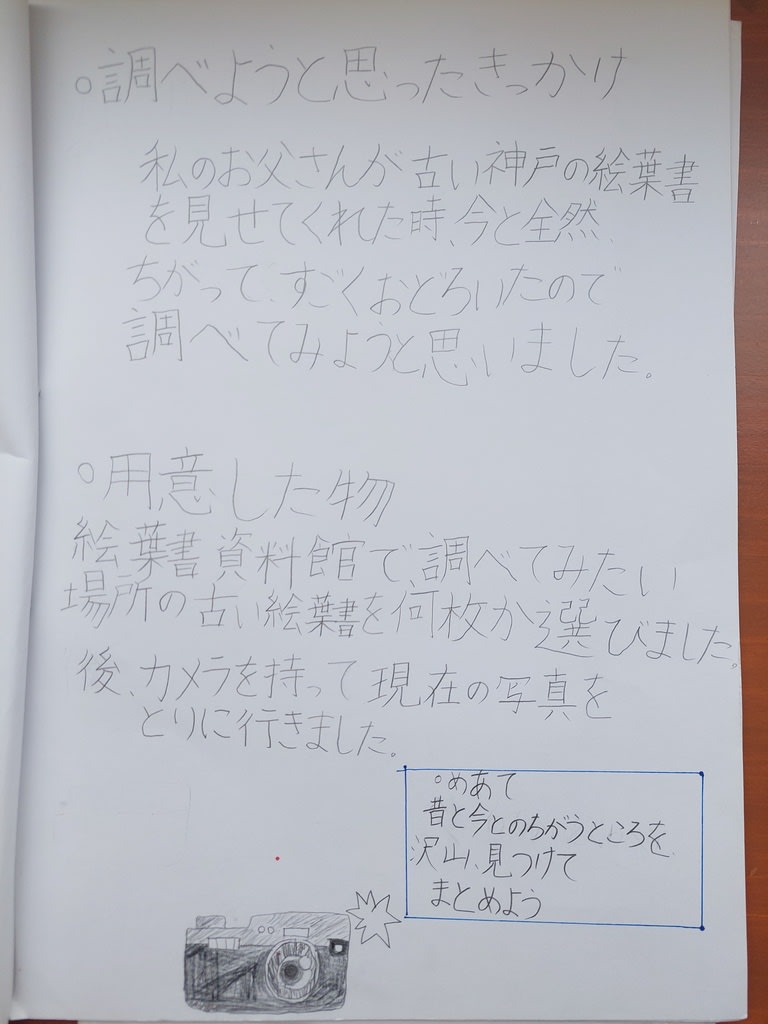 ○調べようと思ったきっかけ
私のお父さんが古い神戸の絵葉書
を見せてくれた時、今と全然、
ちがって、すごくおどろいたので
調べてみようと思いました。
○用意した物
絵葉書資料館で、調べてみたい
場所の古い絵葉書を何枚か選びました。
後、カメラを持って現在の写真を
とりに行きました。
○めあて
昔と今とのちがうところを、
沢山、見つけて
まとめよう